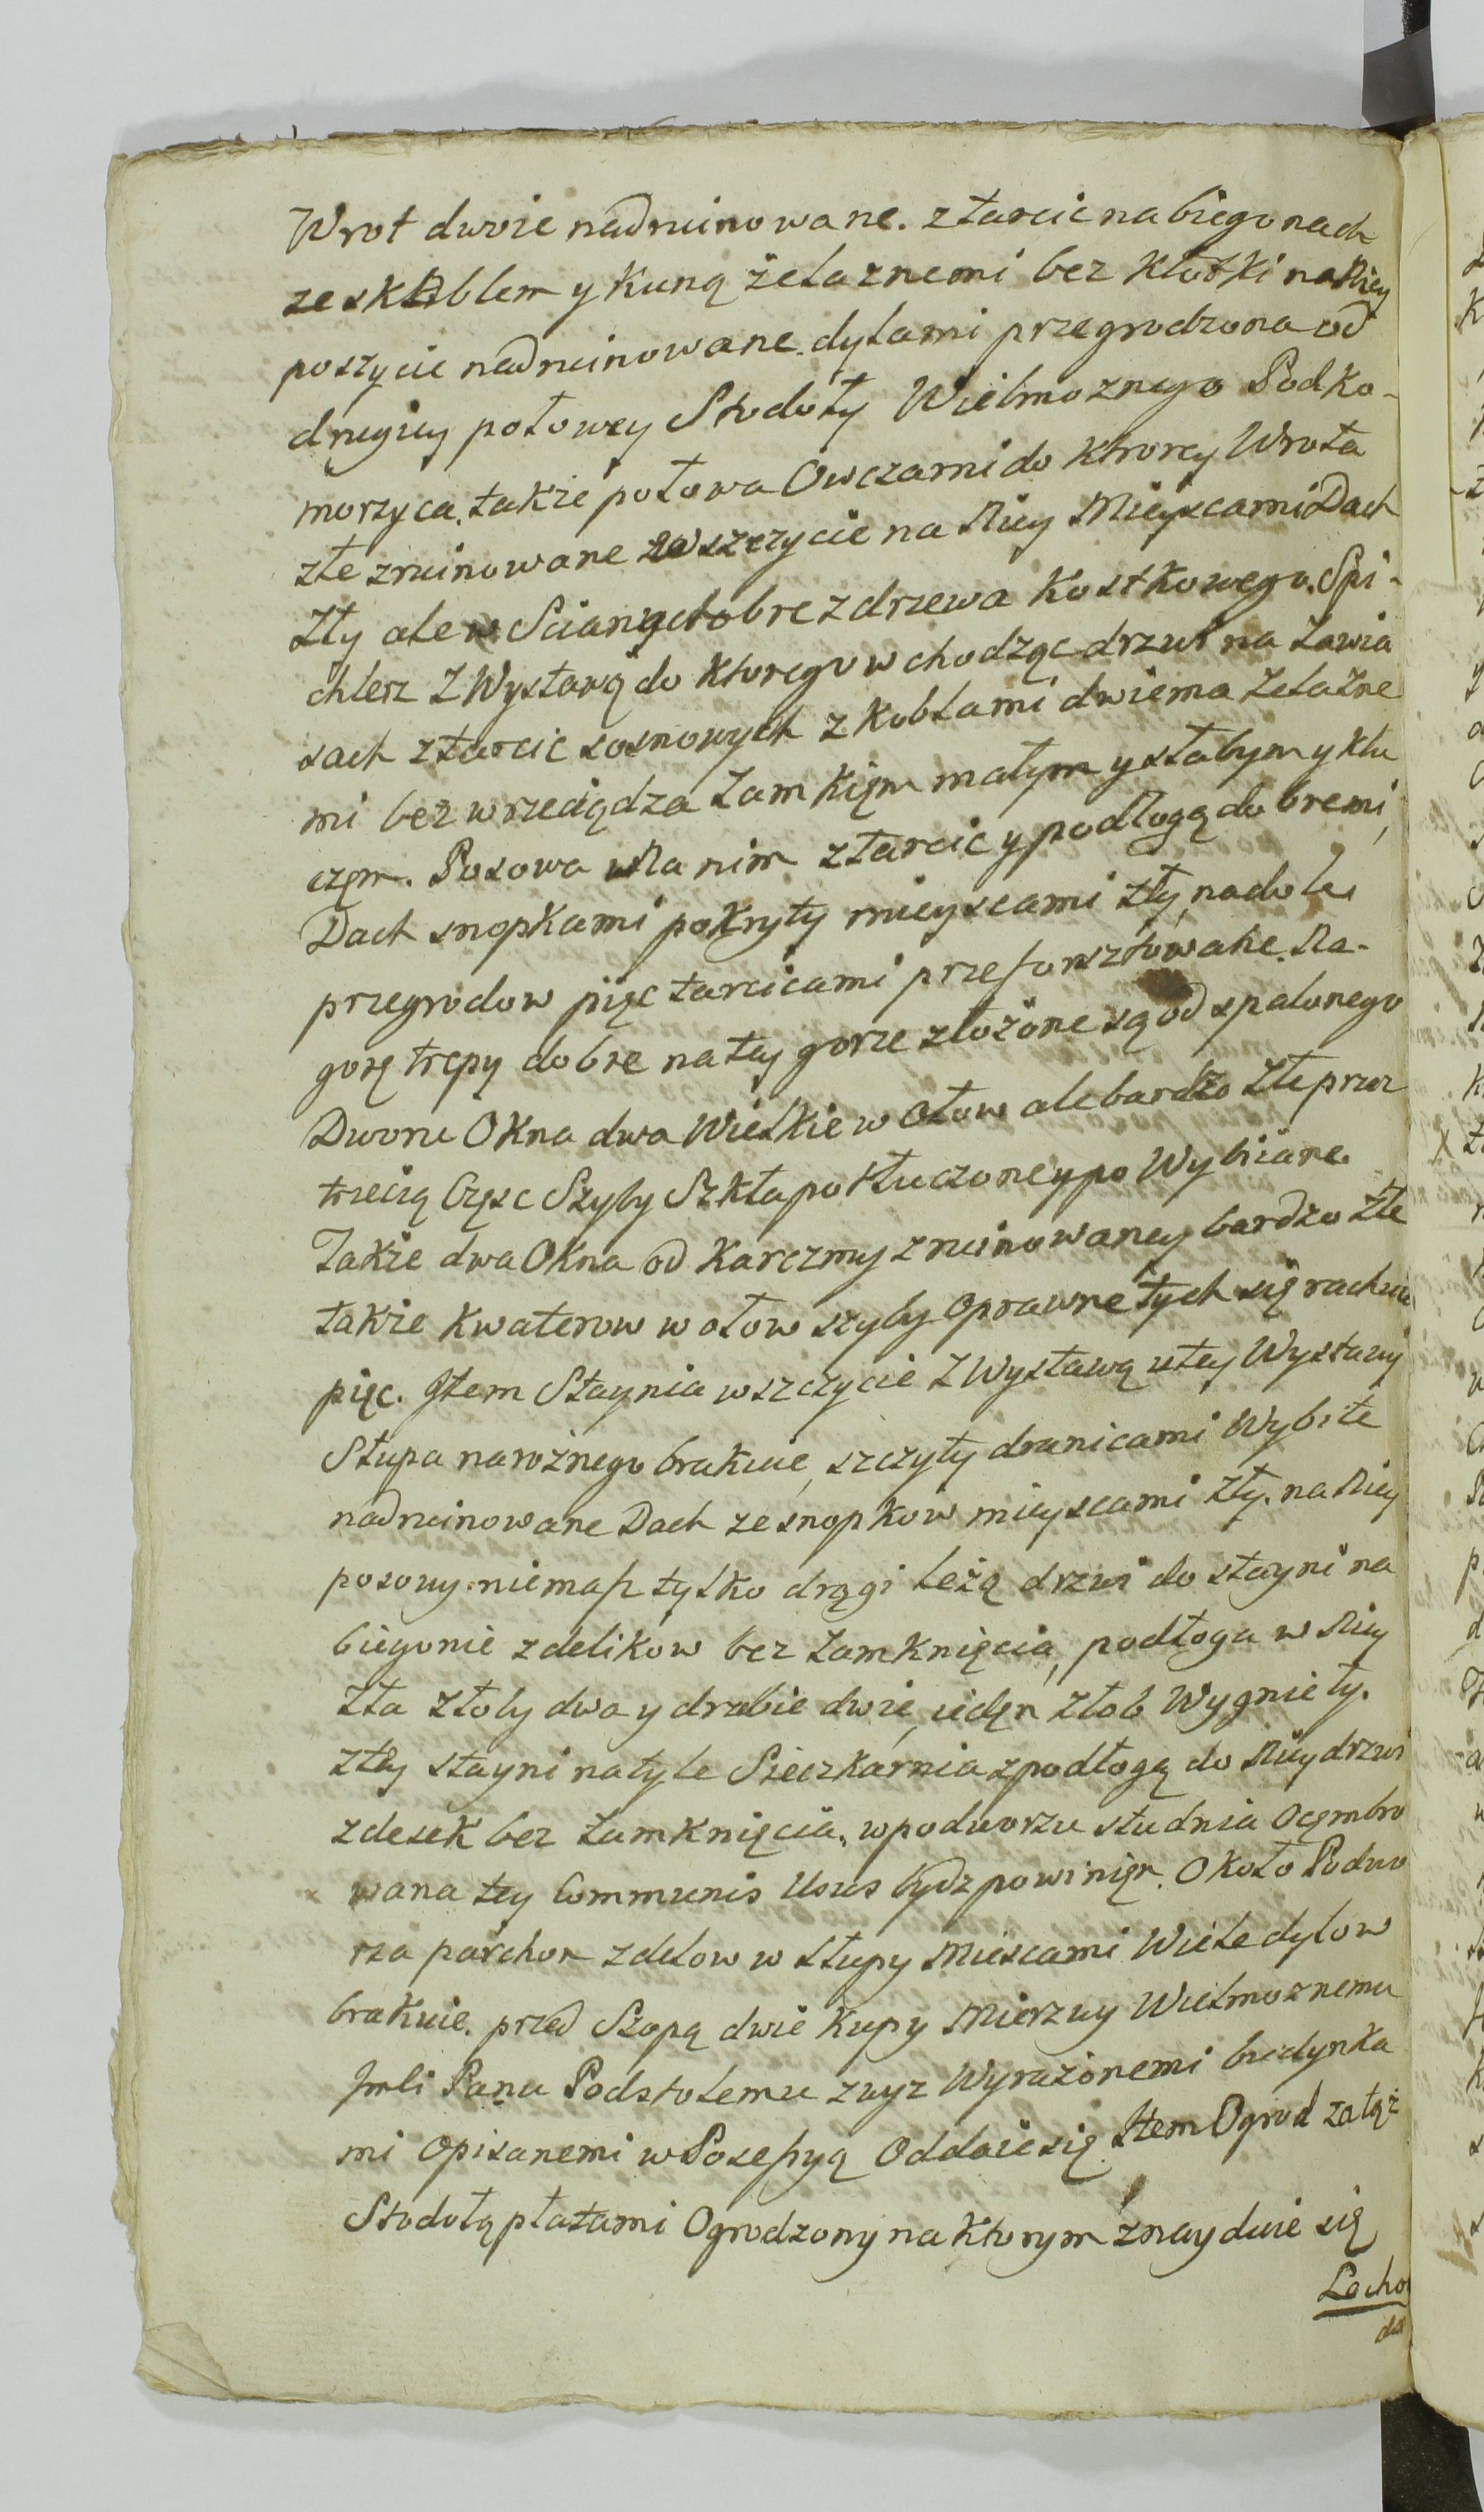 Wrot dwoie nadruinowane. z tarcic na biegonach
ze skoblem y kuną żelaznemi bez kłotki na Niey
poszycie nadruinowane. dylami przegrodzona od
drugiey połowey Stodoły Wielmoznego Podko-
morzyca, także połowa Owczarni do ktorey Wrota
złe zruinowane wszczycie na Niey Mieyscami Dach
zły ale Sciany dobre z drzewa Kostkowego. Spi-
chlerz z Wystawą do ktorego wchodząc drzwi na zawia
sach z tarcic sosnowych z koblami dwiema żelazne
mi bez wrzeciądza zamkięm małym y słabym y klu
częm. Posowa Na nim z tarcic y podłogą dobremi,
Dach snopkami pokryty mieyscami zły, na dole
przegrodow pięc tarcicami przeforsztowane. Na-
gorę trepy dobre na tey gorze złożone są od spalonego
Dworu Okna dwa Wielkie w ołow ale bardzo złe przez
trzecią Częsc Szyby Szkła potłuczoney po Wybiiane
Także dwa Okna od Karczmy zruinowaney bardzo złe
także kwaterow w ołow szyby oprawne tych się rachuie
pięc. Item Staynia wszczycie z Wystawą u tey Wystawy
Słupa narożnego brakuie, szczyty dranicami Wybite
nadruinowane Dach ze snopkow mieyscami zły. na Niey
posowy niemasz tylko drągi leżą drzwi do stayni na
biegonie z delikow bez zamknięcia, podłoga w Niey
zła złoby dwa y drabie dwie, iedęn złob Wygnieły.
z tey stayni na tyle Sieczkarnia z podłogą do Niey drzwi
z desek bez zamknięcia. w podworzu studnia ocęmbro
wana tey Communis Usus bydz powinięn. Około Podwo
rza parchon z delow w słupy Miescami Wiele dylow
brakuie. przed Szopą dwie kupy Mierzwy Wielmoznemu
Jmci Panu Podstolemu z wyz Wyrażonemi budynka
mi opisanemi w Possessyą Oddaie się. Item Ogrod za tąż
Stodołą płatami Ogrodzony na ktorym znayduie się
Lecho
da